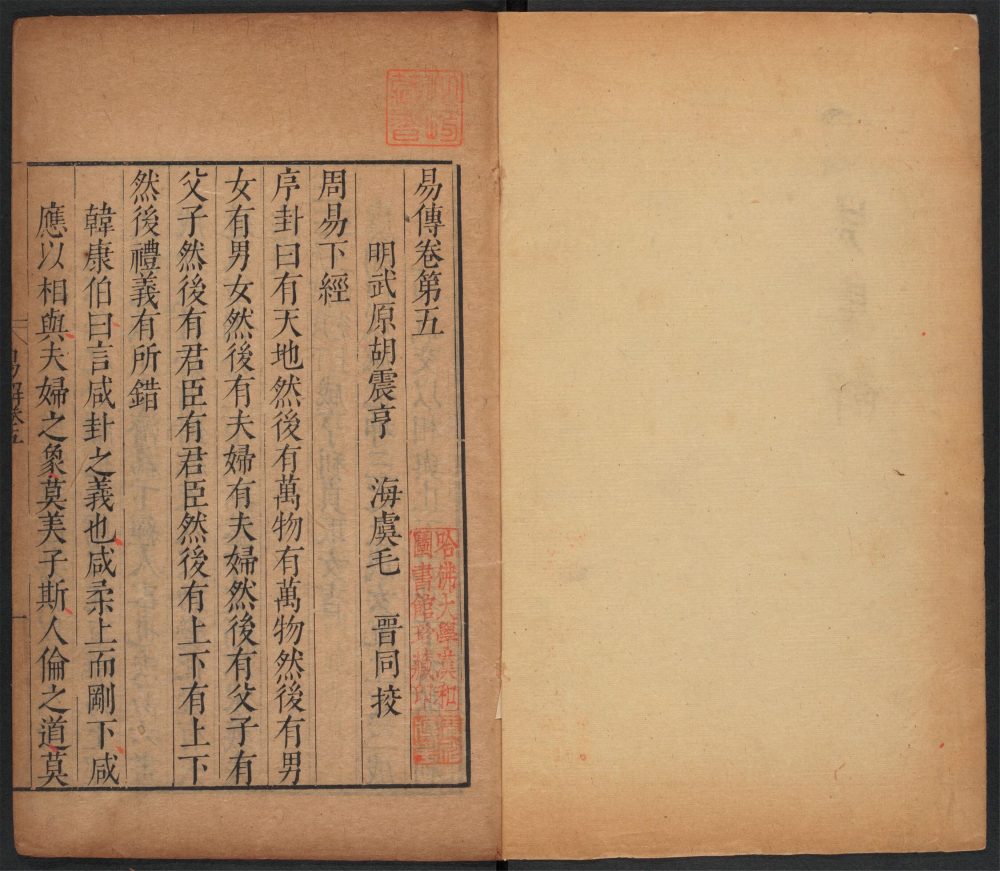 易傳卷第五
明武原胡震亨 海虞毛 晉同挍
周易下經
序卦曰有天地然後有萬物有萬物然後有男
女有男女然後有夫婦有夫婦然後有父子有
父子然後有君臣有君臣然後有上下有上下
然後禮義有所錯
韓康伯曰言咸卦之義也咸柔上而剛下咸
應以相與夫婦之象莫美乎斯人倫之道莫
易解卷五
一
哈佛大學漢和
圖書館珍藏印